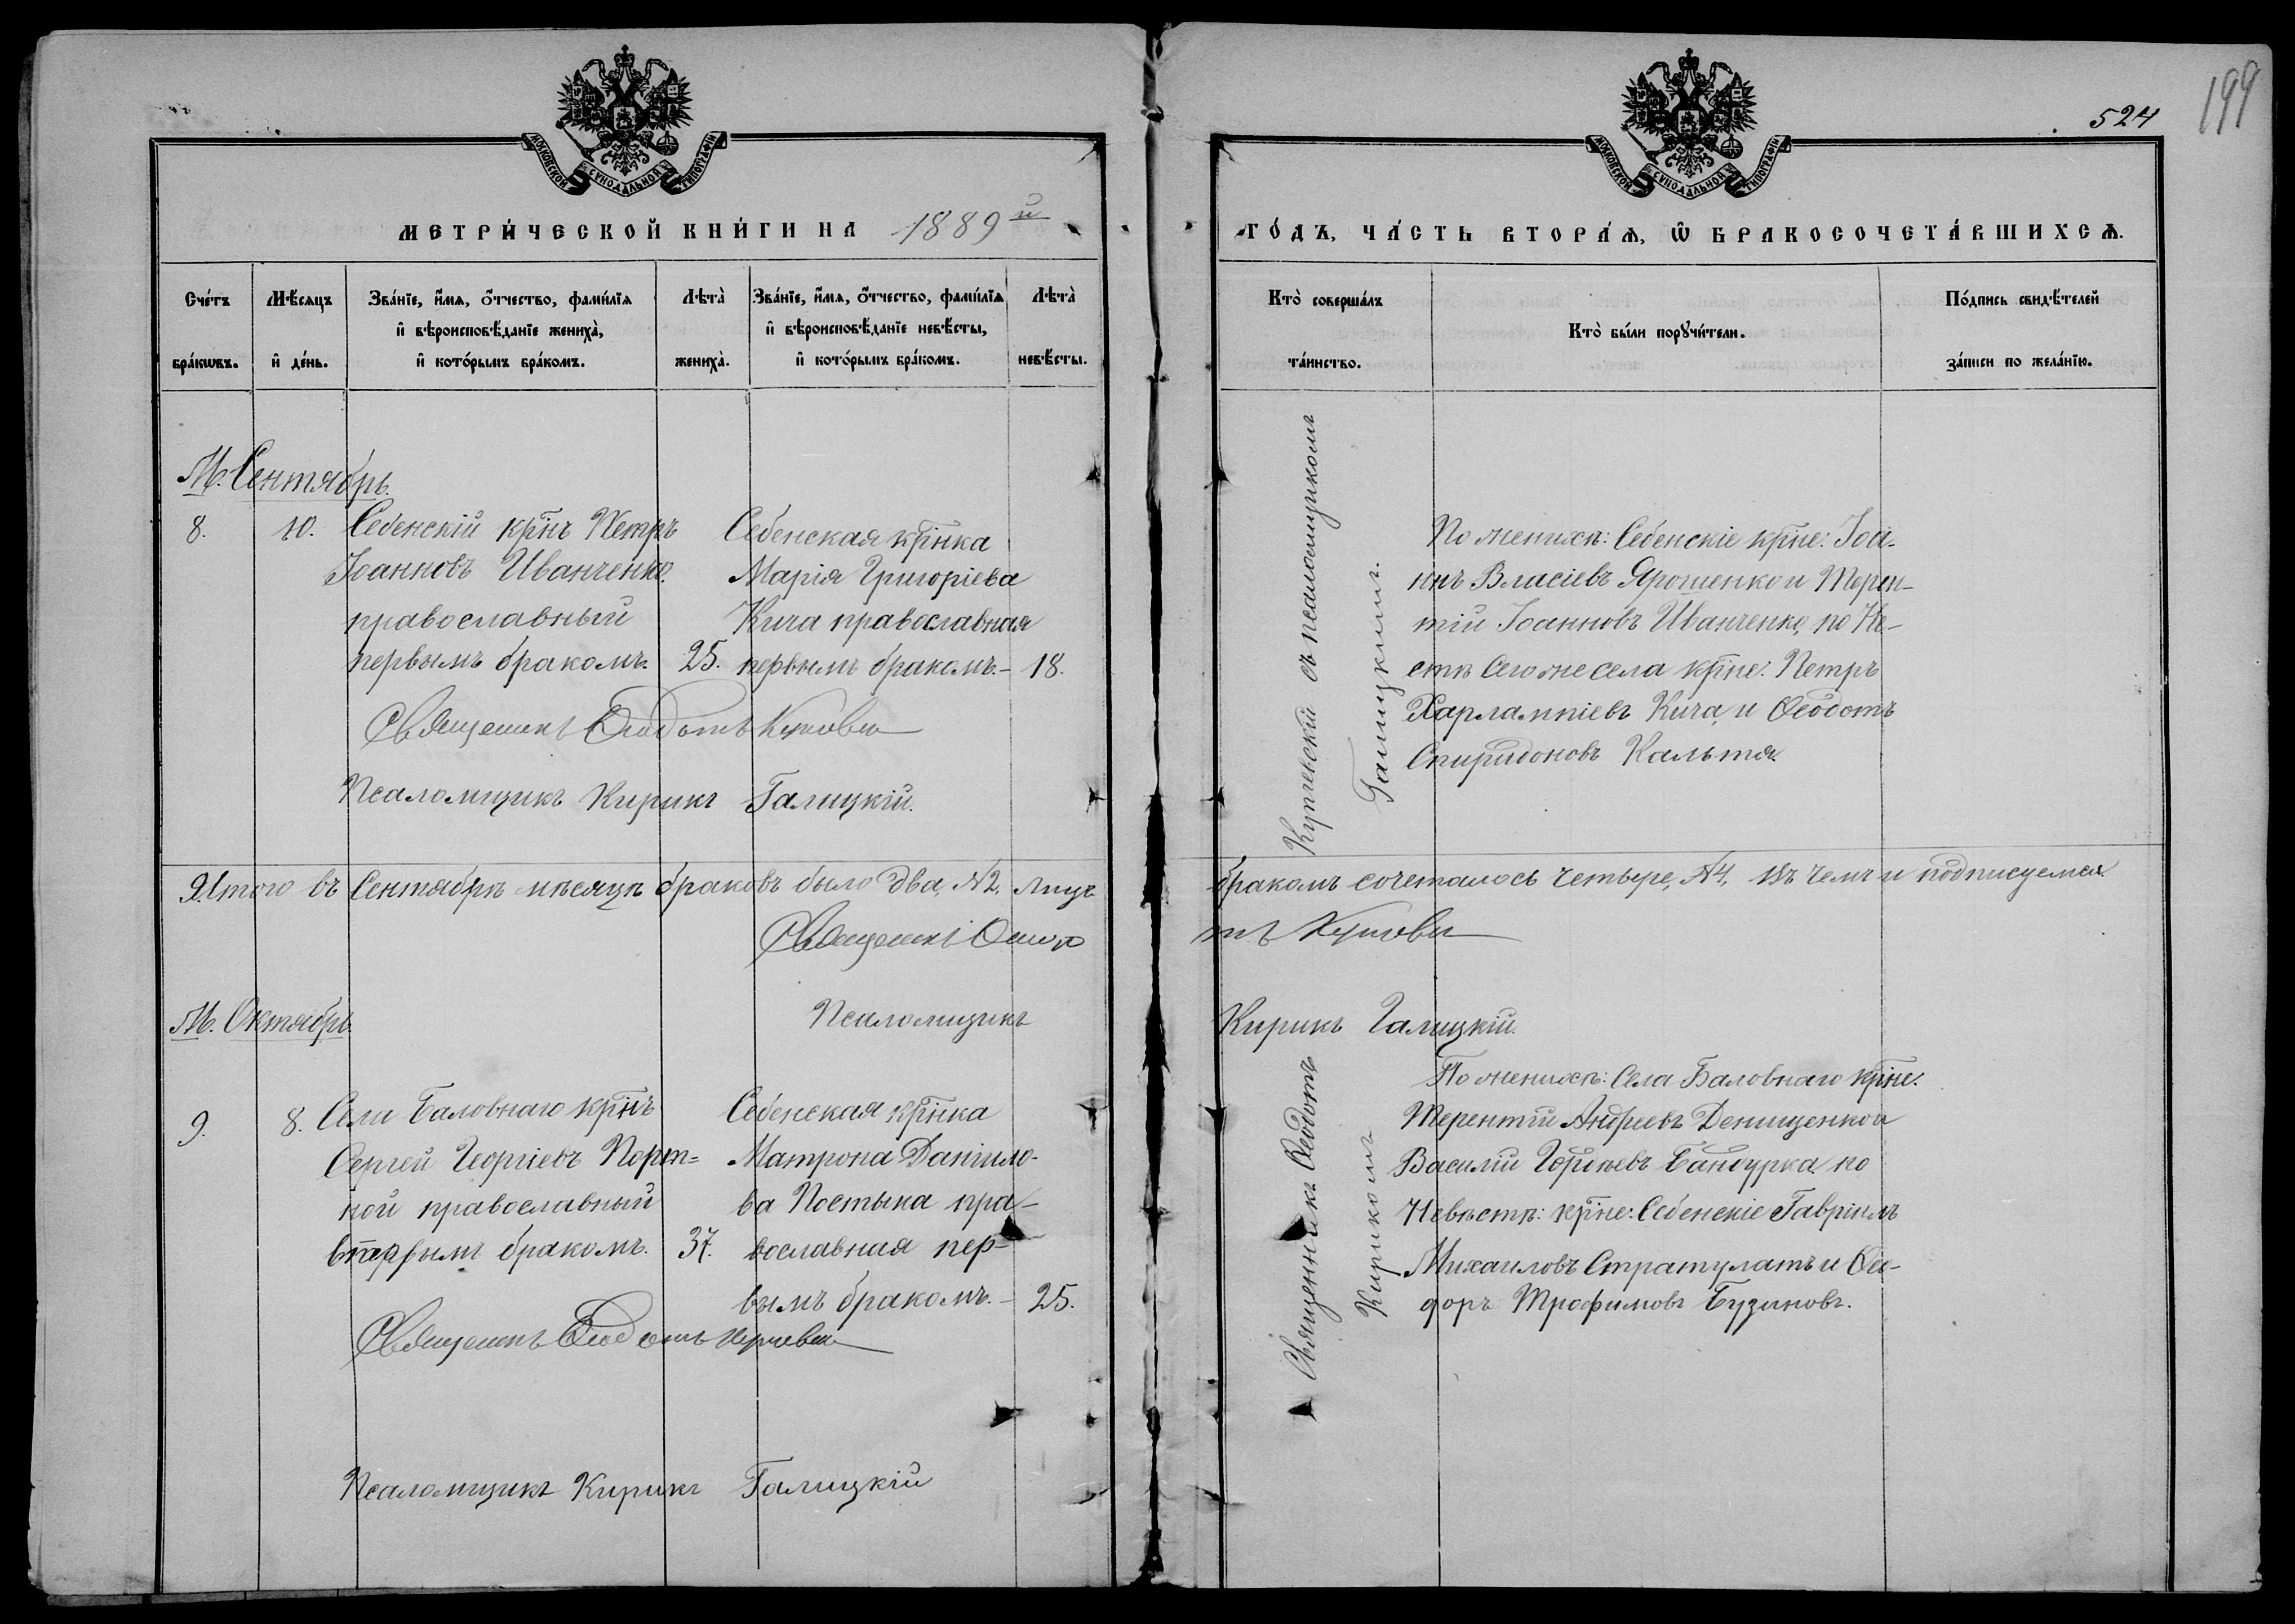 199
524
МОСКОВСКОЙ СѴНОДАЛЬНОЙ ТИПОГРАФІИ
МОСКОВСКОЙ СѴНОДАЛЬНОЙ ТИПОГРАФІИ
МЕТРИ́ЧЕСКОЙ КНИ́ГИ НА 1889й
ГО́ДЪ, ЧА́СТЬ ВТОРА́Ѧ, Ѡ҃ БРАКОСОЧЕТА́ВШИХСѦ.
Сче́тъ бра́кѡвъ.
Мѣ́сяцъ и҆ де́нь.
Зва́нїе, и҆́мѧ, ѻ҆́тчество, фами́лїѧ
и҆ вѣроисповѣ́данїе жениха̀,
и҆ кото́рымъ бра́комъ.
Лѣта̀ жениха̀.
Зва́нїе, и҆́мѧ, ѻ҆́тчество, фами́лїѧ
и҆ вѣроисповѣ́данїе невѣ́сты,
и҆ кото́рымъ бра́комъ.
Лѣта̀ невѣ́сты.
Кто̀ соверша́лъ та́инство.
Кто̀ бы́ли порꙋчи́тели.
По́дпись свидѣ́телей за́писи по жела́нїю.
М. Сентябрь.
8.
10.
Себенскій крнъ Петръ
Іоанновъ Иванченко.
православный
первымъ бракомъ.
25.
Себенская крнка
Марія Григоріева
Кича православная
первымъ бракомъ. –
18.
съ псаломщикомъ
Галицкимъ.
По женихѣ: Себенскіе крне: Іоа-
ннъ Власіевъ Ярошенко и Терен-
тій Іоанновъ Иванченко, по Не-
стѣ сего же села крне: Петръ
Харлампіевъ Кича, и Ѳеодотъ
Спиридоновъ Кальтя.
Священникъ Ѳеодотъ
Псаломщикъ Кирикъ Галицкій.
Итого въ Сентябрѣ мѣсяцѣ браковъ было два, №2. Лицъ
бракомъ сочеталось четыре, №4. Въ чемъ и подписуемся.
Священникъ
Псаломщикъ
Кирикъ Галицкій.
М. Октябрь
9.
8.
Села Баловнаго крнъ
Сергей Георгіевъ Порт=
ной православный
вторымъ бракомъ.
37.
Себенская крнка
Матрона Даніило-
ва Постыка пра-
вославная пер-
вымъ бракомъ. –
25.
Священникъ Ѳеодотъ
Кирикомъ
По женихѣ: Села Баловнаго крне.
Терентій Андреевъ Денищенко и
Василій Гордѣевъ Бандурка по
Невѣстѣ: крне: Себенскіе Гавріилъ
Михаиловъ Стратулатъ и Ѳео-
доръ Трофимовъ Бузиновъ.
Священникъ Ѳеодотъ
Псаломщикъ Кирикъ Галицкій